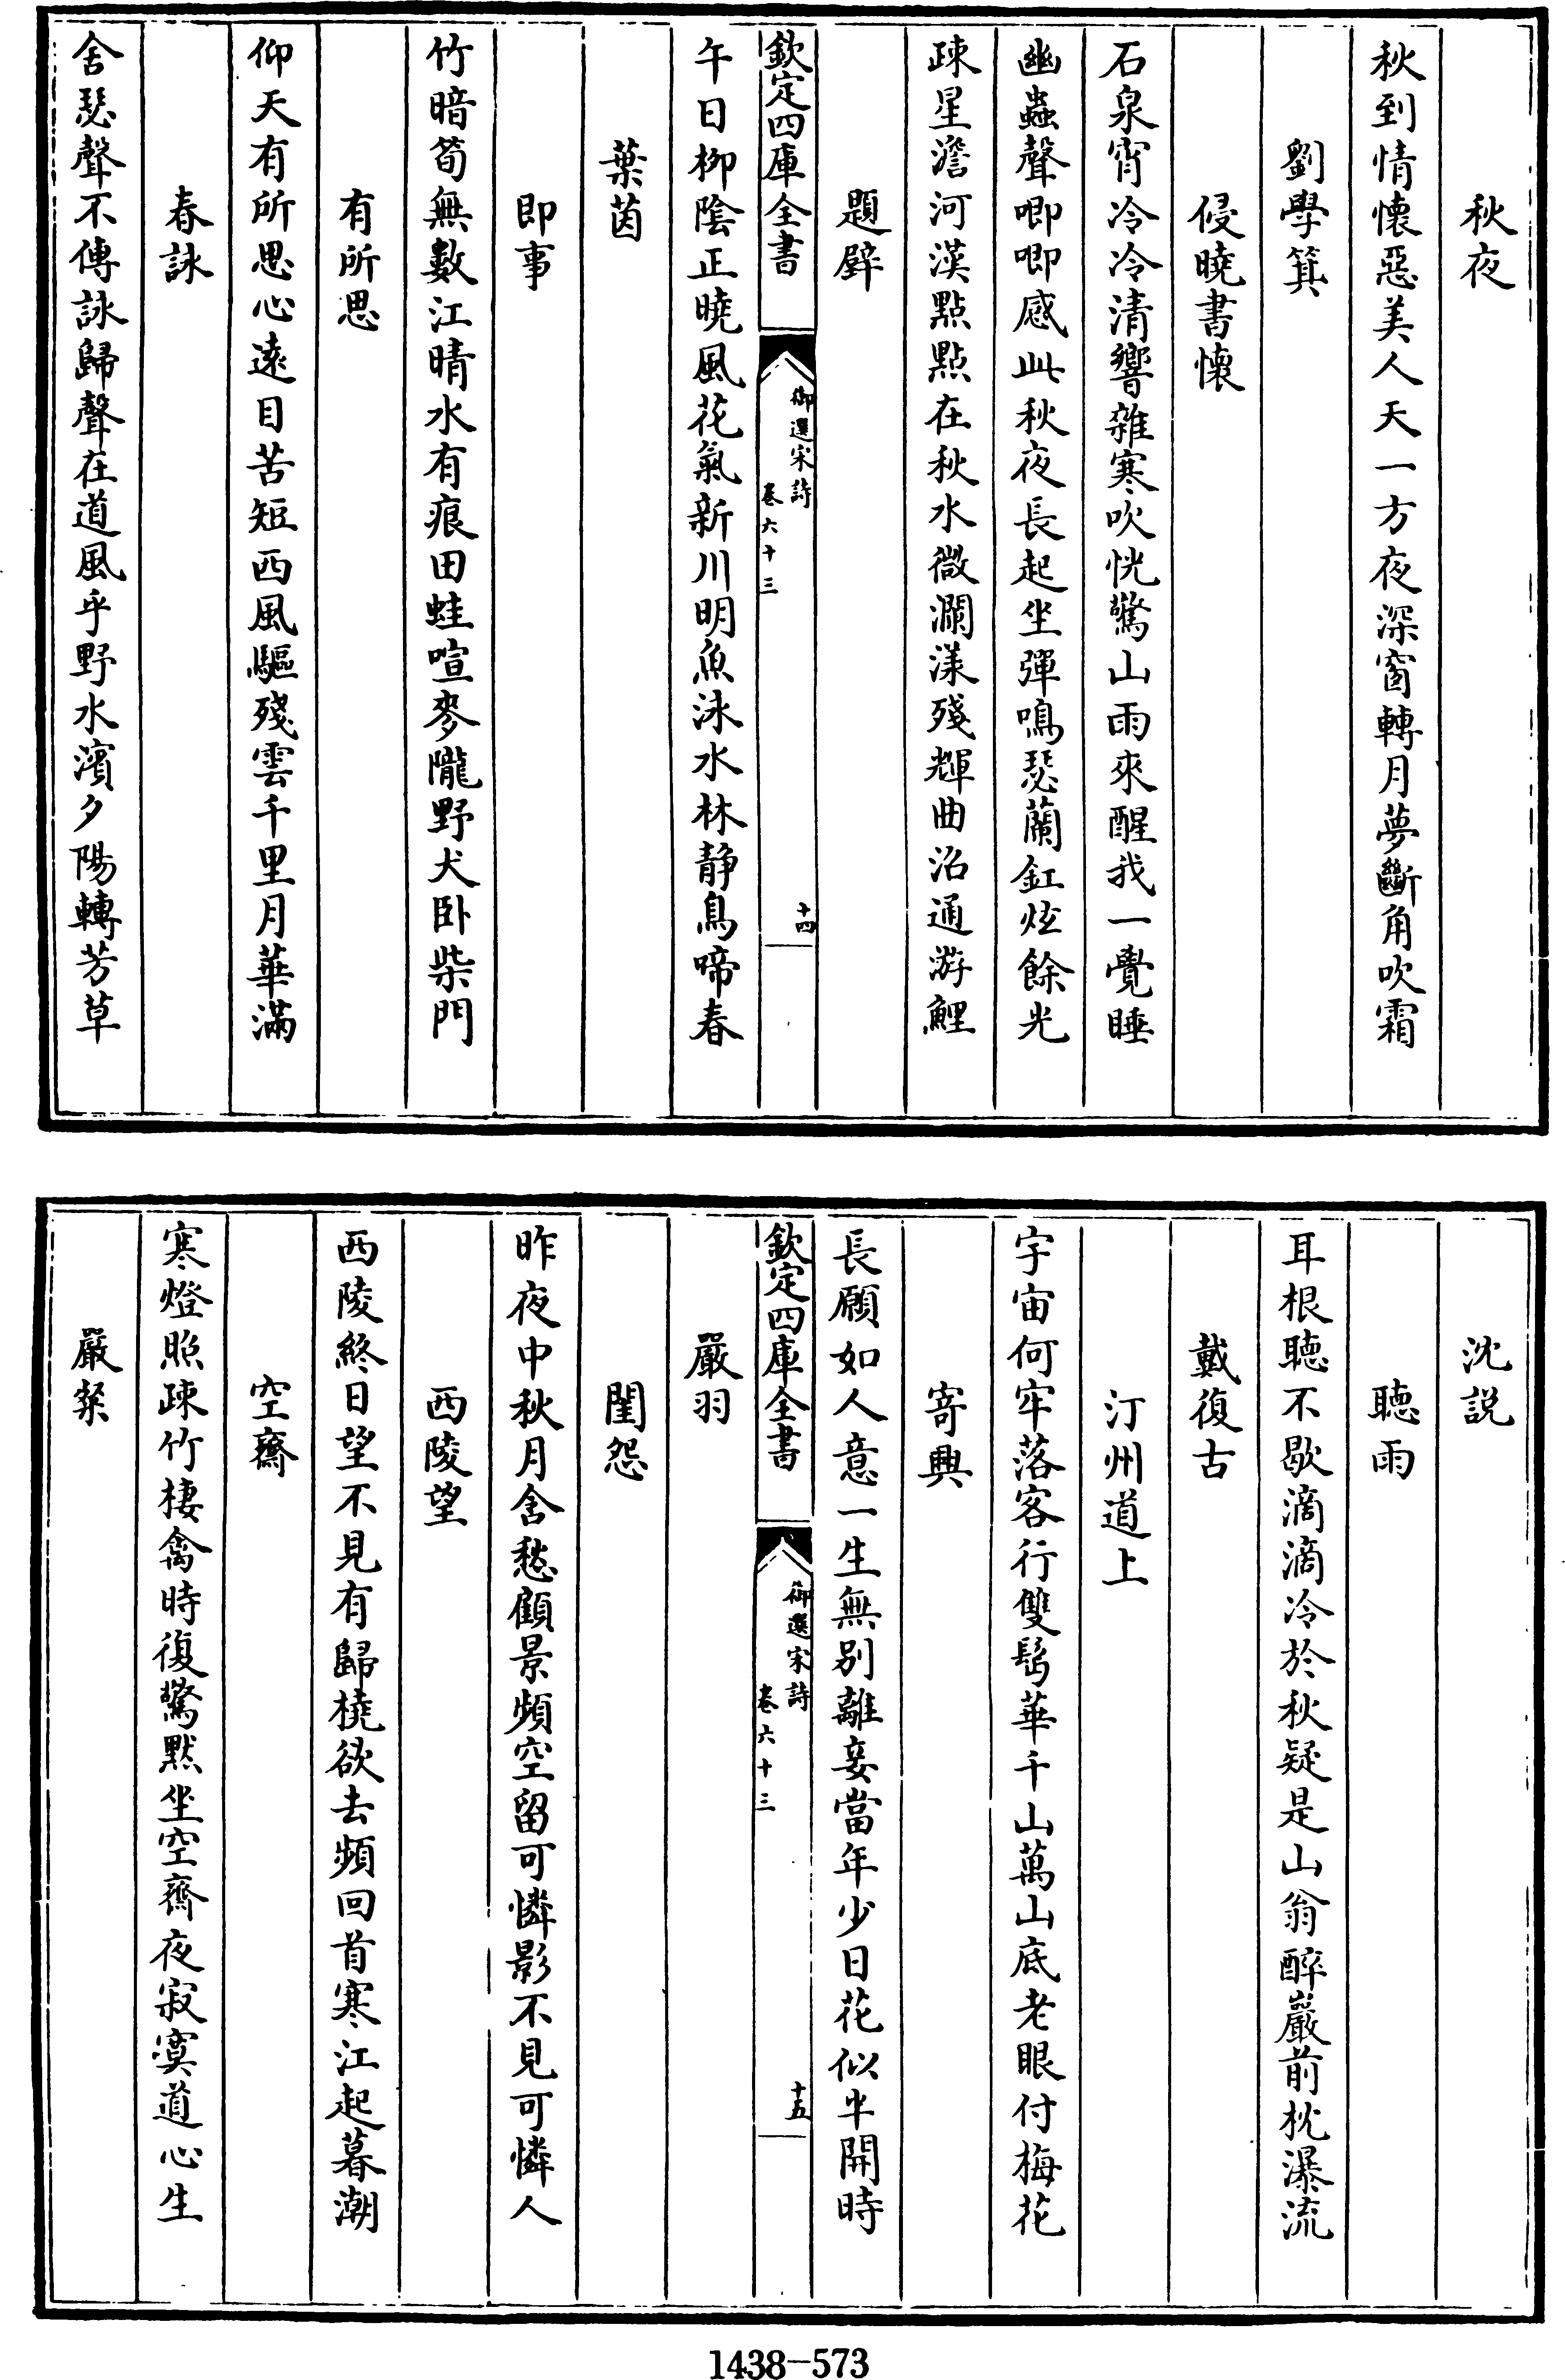 秋夜
秋到情懷惡美人天一方夜深窗轉月夢斷角吹霜
劉學箕
侵曉書懷
石泉宵冷冷清響雜寒吹恍驚山雨來醒我一覺睡
幽蟲聲唧唧感此秋夜長起坐彈鳴瑟蘭釭炫餘光
疎星澹河漢點點在秋水微瀾漾殘輝曲沼通游鯉
題壁
欽定四庫全書
御選宋詩
卷六十三
十四
午日柳陰正曉風花氣新川明魚泳水林静鳥啼春
葉茵
即事
竹暗筍無數江晴水有痕田蛙喧麥隴野犬卧柴門
有所思
仰天有所思心遠目苦短西風驅殘雲千里月華滿
春詠
舍瑟聲不傳詠歸聲在道風乎野水濱夕陽轉芳草
沈説
聽雨
耳根聽不歇滴滴冷於秋疑是山翁醉巖前枕瀑流
戴復古
汀州道上
宇宙何牢落客行雙鬂華千山萬山底老眼付梅花
寄興
長願如人意一生無别離妾當年少日花似半開時
欽定四庫全書
御選宋詩
卷六十三
十五
嚴羽
閨怨
昨夜中秋月含愁顧景頻空留可憐影不見可憐人
西陵望
西陵終日望不見有歸橈欲去頻回首寒江起暮潮
空齋
寒燈照疎竹棲禽時復驚默坐空齋夜寂寞道心生
嚴粲
1438-573